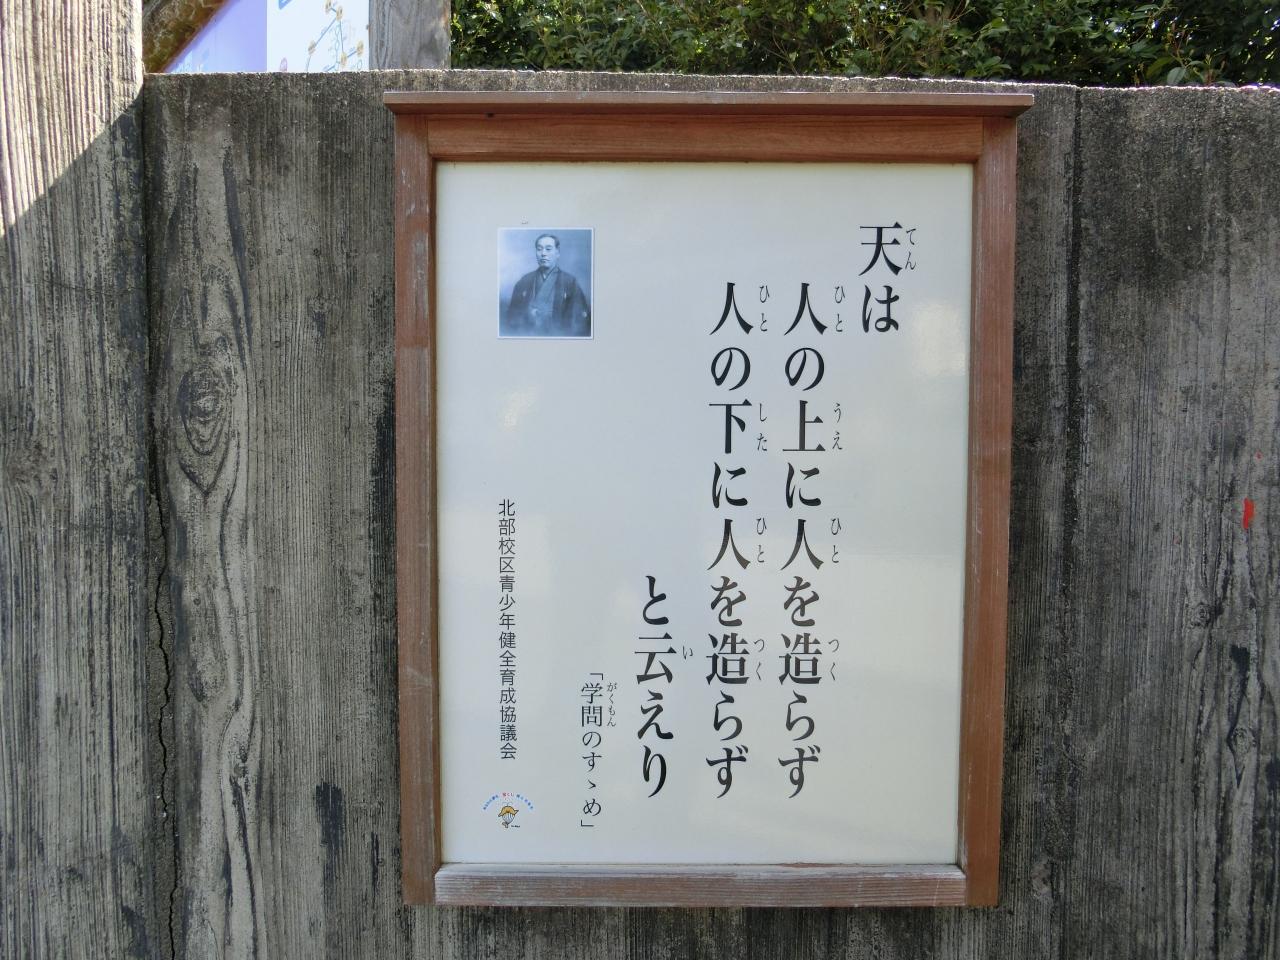 天は
人の上に人を造らず
人の下に人を造らず
と云えり
「学問のすゝめ」
北部校区青少年健全育成協議会
てん
ひと
うえ
ひと
つく
ひと
した
ひと
つく
い
がくもん